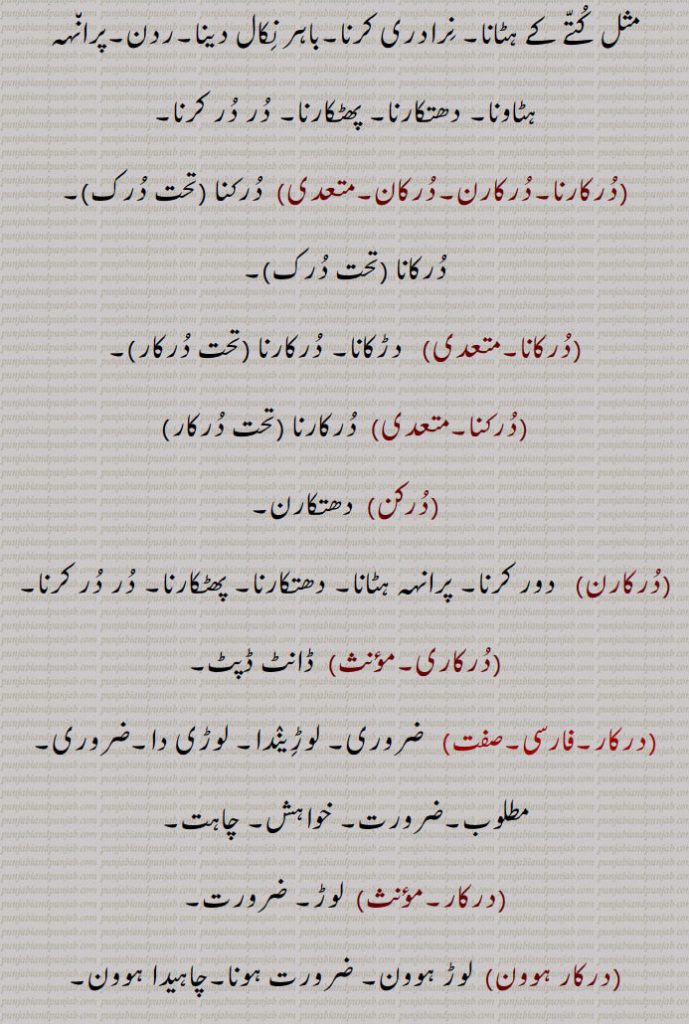 مثل کُتّے کے ہٹانا۔ نِرادری کرنا۔باہر نِکال دینا۔ردن۔پرانّہہ
ہٹاونا۔ دھتکارنا۔ پھٹکارنا۔ دُر دُر کرنا۔
(دُرکارنا۔دُرکارن۔دُرکان۔متعدی) دُرکنا (تحت دُرک)۔
دُرکانا (تحت دُرک)۔
(دُرکانا۔متعدی) دڑکانا۔ دُرکارنا (تحت دُرکار)۔
(دُرکنا۔متعدی) دُرکارنا (تحت دُرکار)
(دُرکن) دھتکارن۔
(دُرکارن) دور کرنا۔ پرانہہ ہٹانا۔ دھتکارنا۔ پھٹکارنا۔ دُر دُر کرنا۔
(دُرکاری۔مؤنث) ڈانٹ ڈپٹ۔
(درکار۔فارسی۔صفت) ضروری۔ لوڑِینْدا۔ لوڑی دا۔ضروری۔
مطلوب۔ضرورت۔ خواہش۔ چاہت۔
(درکار۔مؤنث) لوڑ۔ ضرورت۔
(درکار ہوون) لوڑ ہوون۔ ضرورت ہونا۔چاہیدا ہوون۔